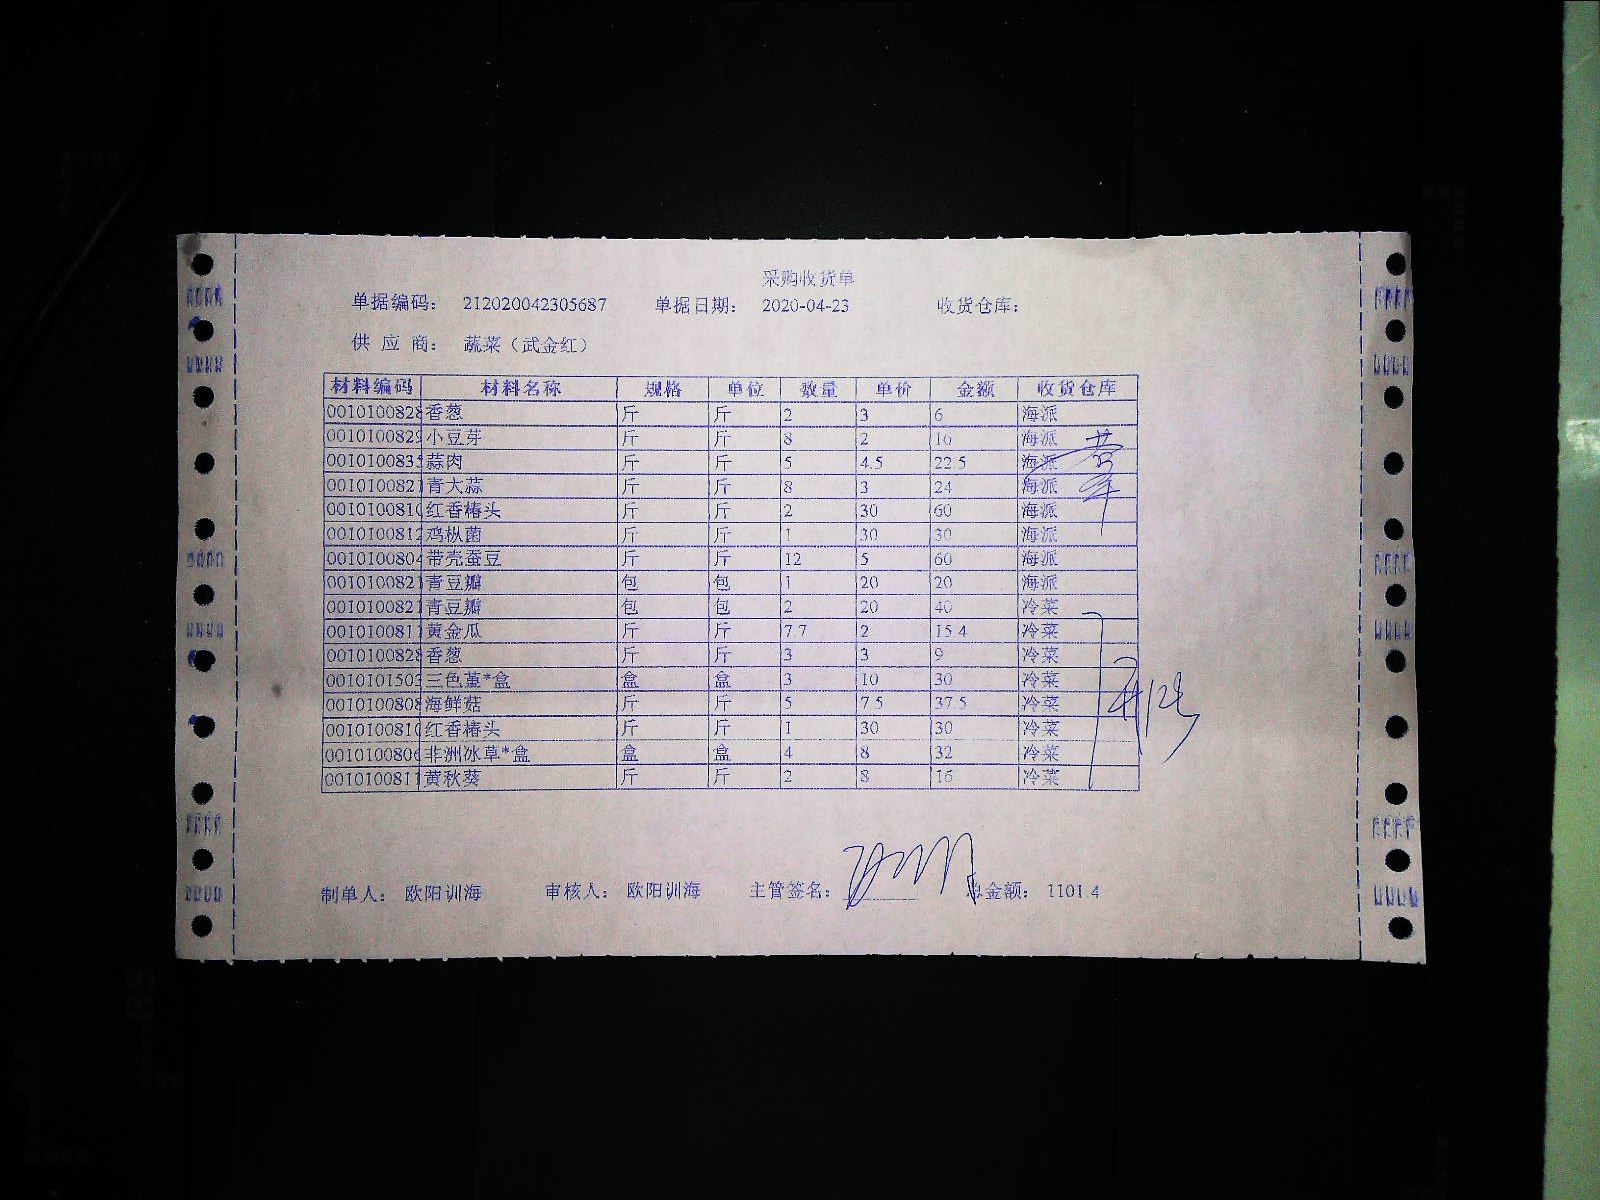 采购收货单
单据编码： 212020042305687 单据日期： 2020-04-23 收货仓库：
供 应 商： 蔬菜（武金红）
材料编码 材料名称 规格 单位 数量 单价 金额 收货仓库
0010100828 香葱 斤 斤 2 3 6 海派
0010100829 小豆芽 斤 斤 8 2 16 海派
001010083 蒜肉 斤 斤 5 4.5 22.5 海派
001010082 青大蒜 斤 斤 8 3 24 海派
001010081 红香椿头 斤 斤 2 30 60 海派
0010100812 鸡枞菌 斤 斤 1 30 30 海派
0010100804 带壳蚕豆 斤 斤 12 5 60 海派
001010082 青豆瓣 包 包 1 20 20 海派
001010082 青豆瓣 包 包 2 20 40 冷菜
001010081 黄金瓜 斤 斤 7.7 2 15.4 冷菜
0010100828 香葱 斤 斤 3 3 9 冷菜
001010150 三色堇*盒 盒 盒 3 10 30 冷菜
0010100808 海鲜菇 斤 斤 5 7.5 37.5 冷菜
001010081 红香椿头 斤 斤 1 30 30 冷菜
001010080 非洲冰草*盒 盒 盒 4 8 32 冷菜
001010081 黄秋葵 斤 斤 2 8 16 冷菜
制单人： 欧阳训海 审核人： 欧阳训海 主管签名： 总金额： 1101.4